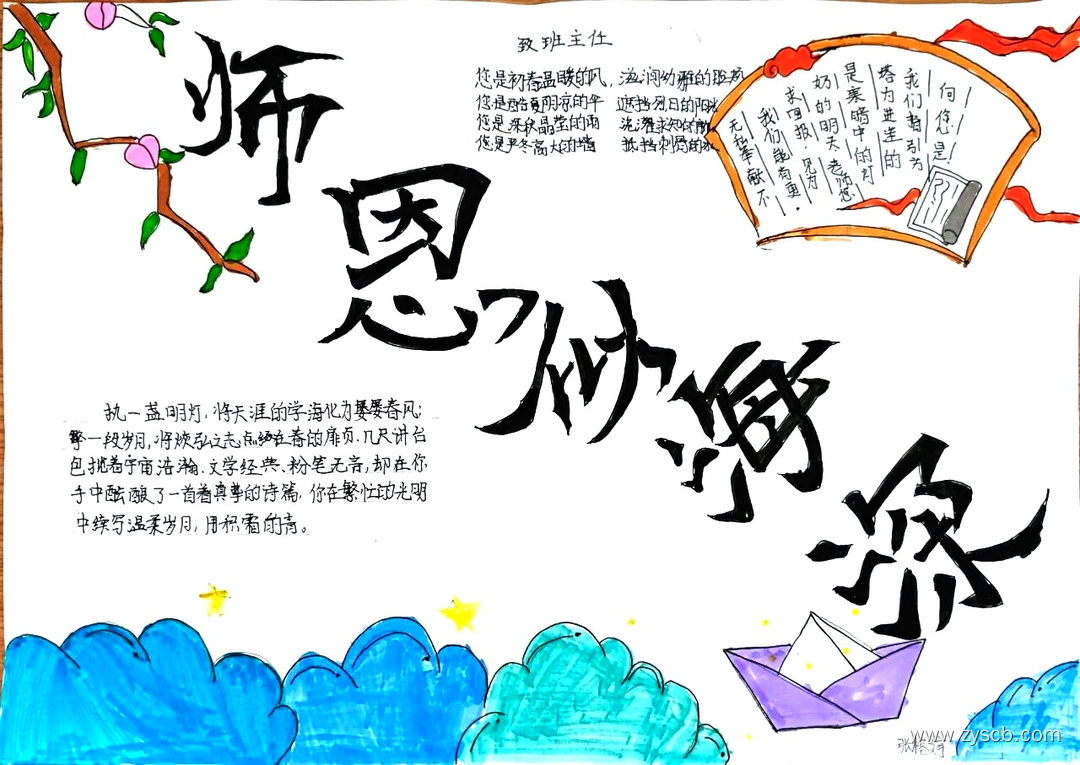 师恩似海深
致班主任
您是初春温暖的风，滋润幼雅的
您是酷夏阴凉的伞 遮挡烈日的阳
您是深秋晶莹的雨 洗濯求知的
您是严冬高大的墙 抵挡刺骨的
向您是
我们指引为
塔为进迷的
是寒暗中的灯
奶的明天老师您
求回报，见为
我们能有更，
无私奉献不
执一盏明灯，将天涯的学海化为春风；
擎一段岁月，将焕弘文志点在春的扉页，几尺讲台
包揽着宇宙浩瀚、文学经典、粉笔无言，却在你
手中酝酿了一首着真挚的诗篇，你在繁忙的光明
中续写温柔岁月，用积霜的青。
www.zyscb.com